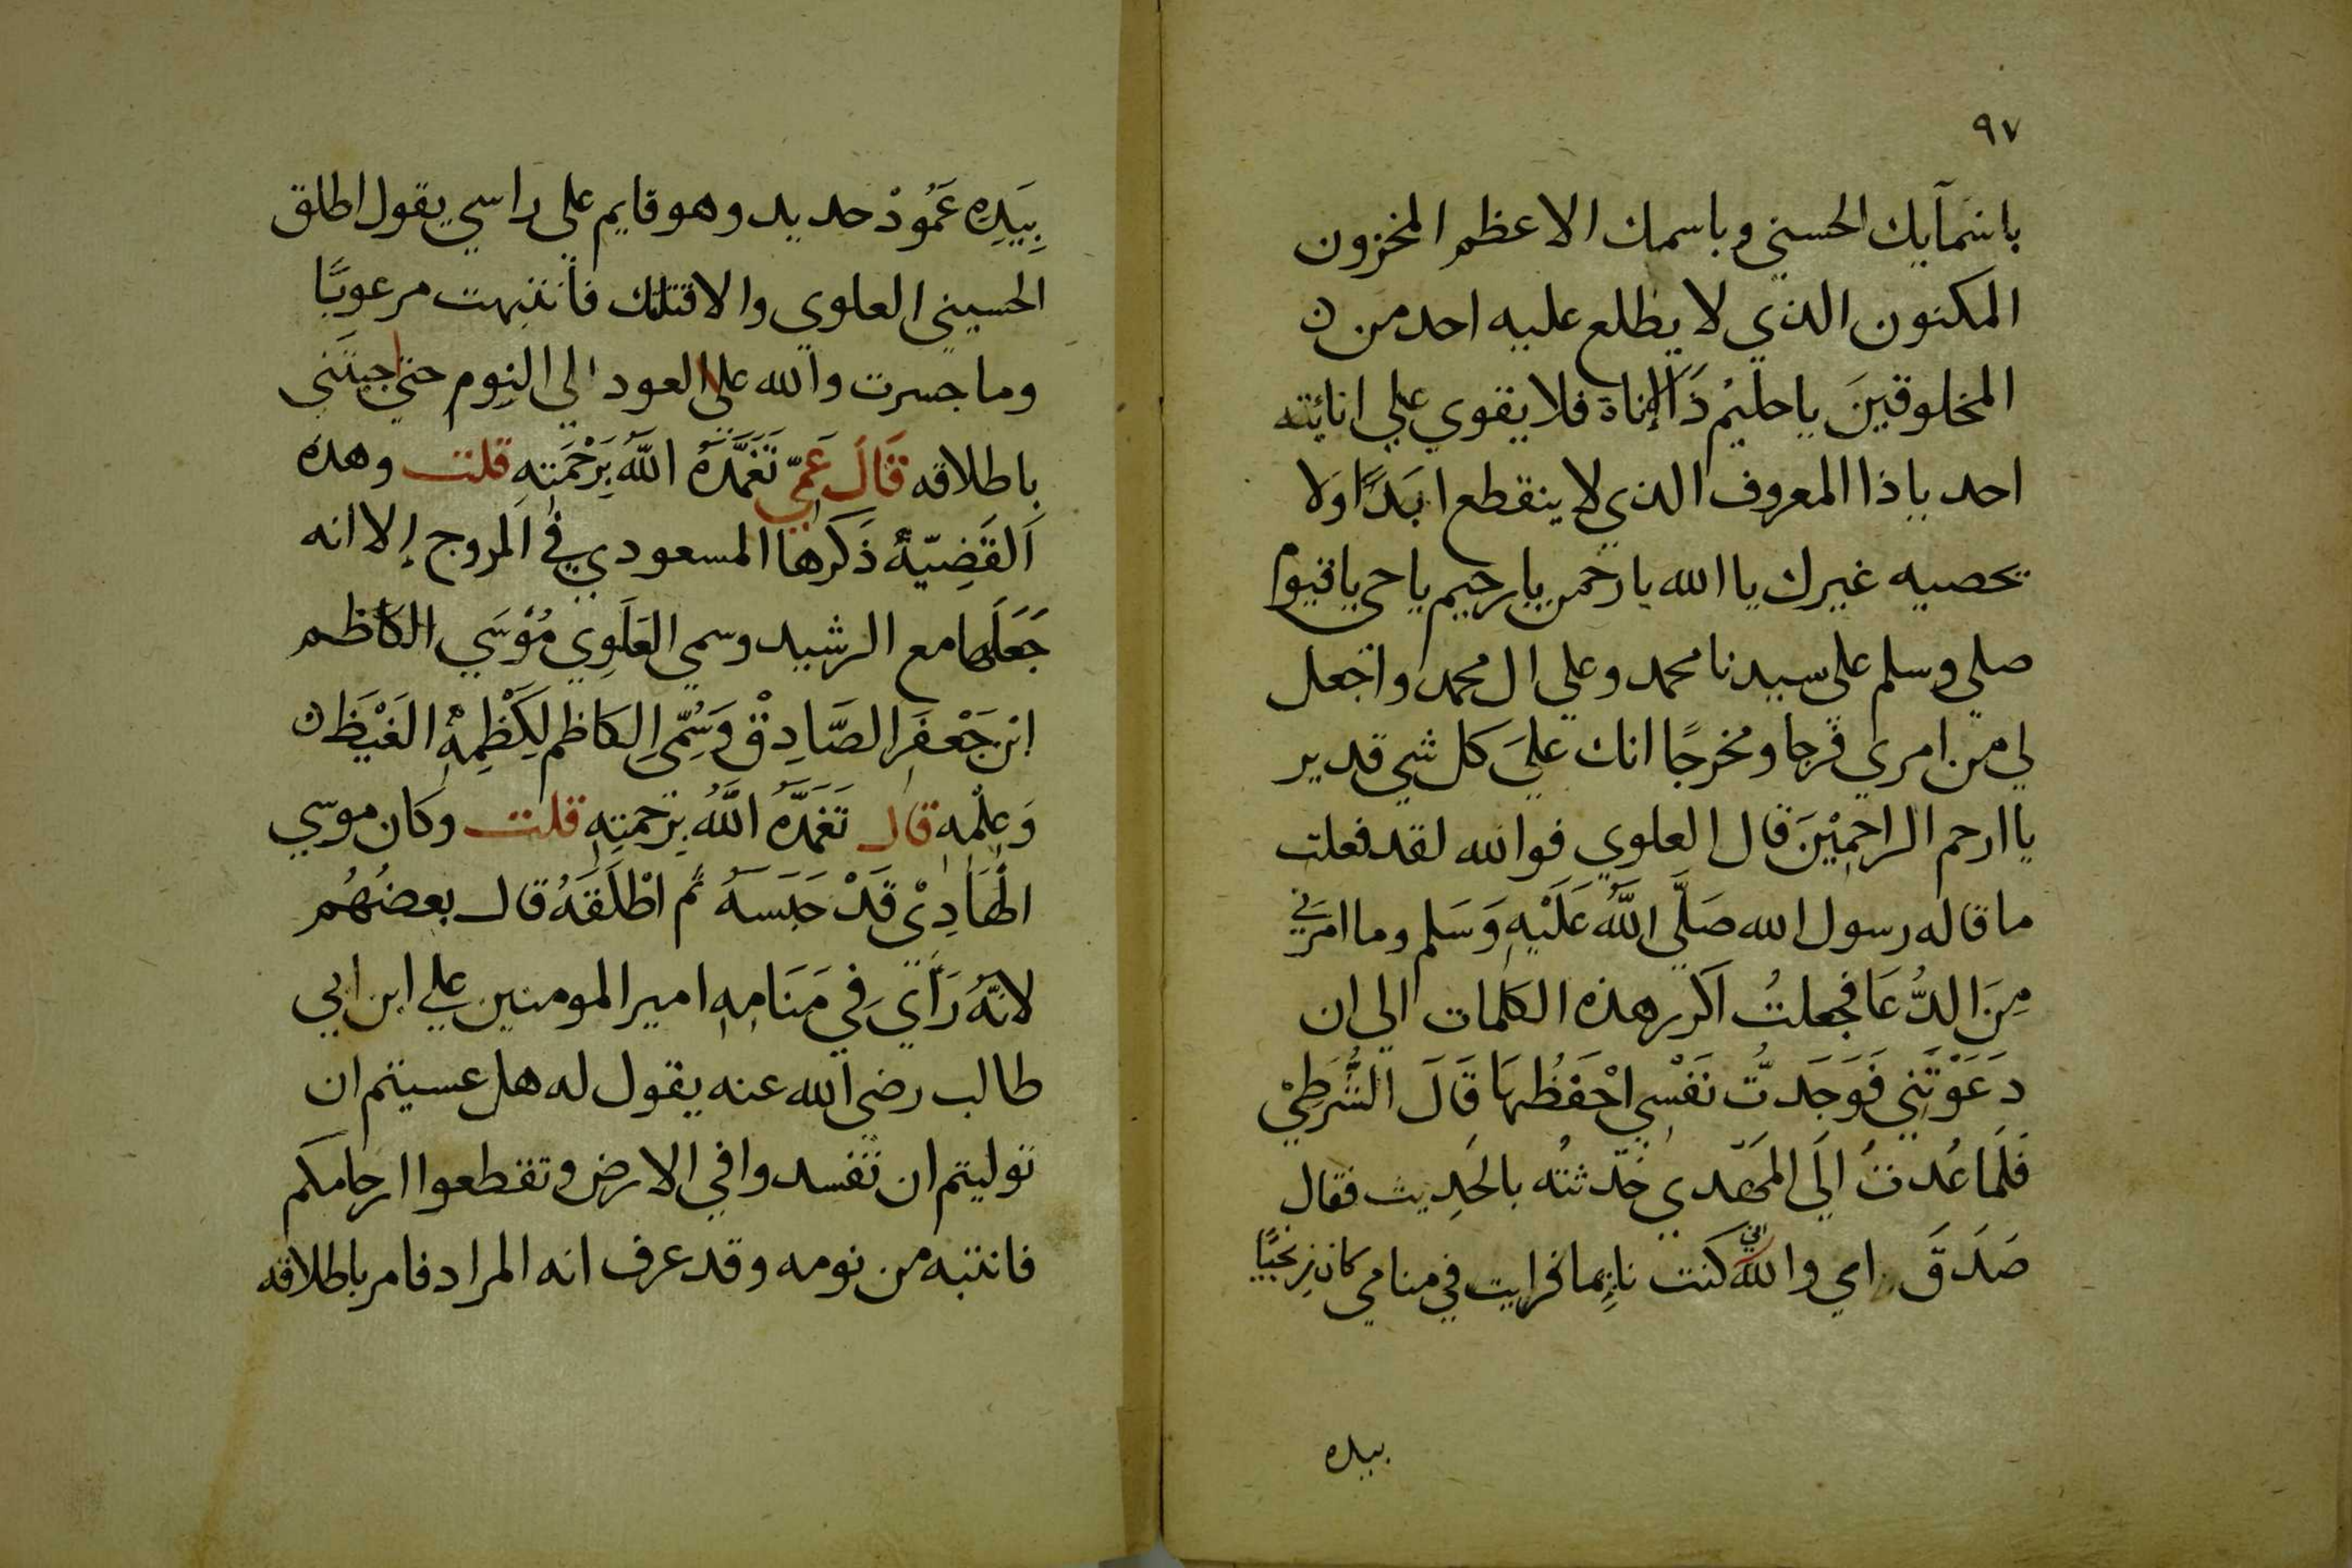 ٩٧
باسْمآيك الحسني وباسمك الاعظم المخزون
المكنون الذي لا يطلع عليه احد من
المخلوقينَ ياحليْم ذَا الإناة فلا يقوي علي انائته
احد ياذا المعروف الذي لا ينقطع ابَدًا وَلا
يحصيه غيرك يا الله يا رحمن يا رحيم ياحي ياقيوم
صلي وسلم على سيدنا محمد وعلي ال محمد واجعل
لي من امري فرجا ومخرجًا انك عليَ كل شي قدير
يا ارحم الراحمِيْنَ قال العلوي فوالله لقد فعلت
ما قاله رسول الله صَلَّي اللَّهُ عَلَيْهِ وَسَلم وما امرَني
مِنَ الدُّعَا فجعلتُ اكرر هذه الكلمات الي ان
دَعَوْتَنِي فَوَجَدتُّ نَفْسِي احْفَظُهَا قَالَ الشُّرَطِيْ
فَلَما عُدتُ الَي المَهْدي حَدّثتُه بالحَدِيث فقال
صَدَقَ اي والله اني كنت نايِما فرايت في منامي كان زِنجيًا
بيده
بِيَدِهِ عَمُودْ حديد وهو قايم علي راسي يقول اطلق
الحسيني العلوي والا قتلتك فانتبهت مرعوبًا
وما جسرت والله علي العود الي النوم حتي اجيتَني
باطلاقه قَالَ عَمّي تَغَمَّدَهُ اللَّهُ بِرَحْمَتِهِ قلت وهذه
اَلقَضِيّةُ ذَكَرها المسعودي في المروج إلا انه
جَعَلَهَا مع الرشيد وسمي العَلَوِي مُوْسَي الكاظم
ابْن جَعْفَر الصَّادِقْ وَسُمِّيَ الكاظم لِكَظْمِهِ الغَيْظَ
وَعِلْمِهِ قال تَغَمَّدَهُ اللَّهُ بِرَحمتِهِ قلت وكان موسي
الْهَادِيْ قَدْ حَبَسَهُ ثم اطْلَقَهُ قال بعضُهُم
لانّهُ رَأَي فِي مَنَامِهِ امير المومنين علي ابن ابي
طالب رضي الله عنه يقول له هل عسيتم ان
توليتم ان تفسدوا في الارض وتقطعوا ارحامكم
فانتبه من نومه وقد عرف انه المراد فامر باطلاقه